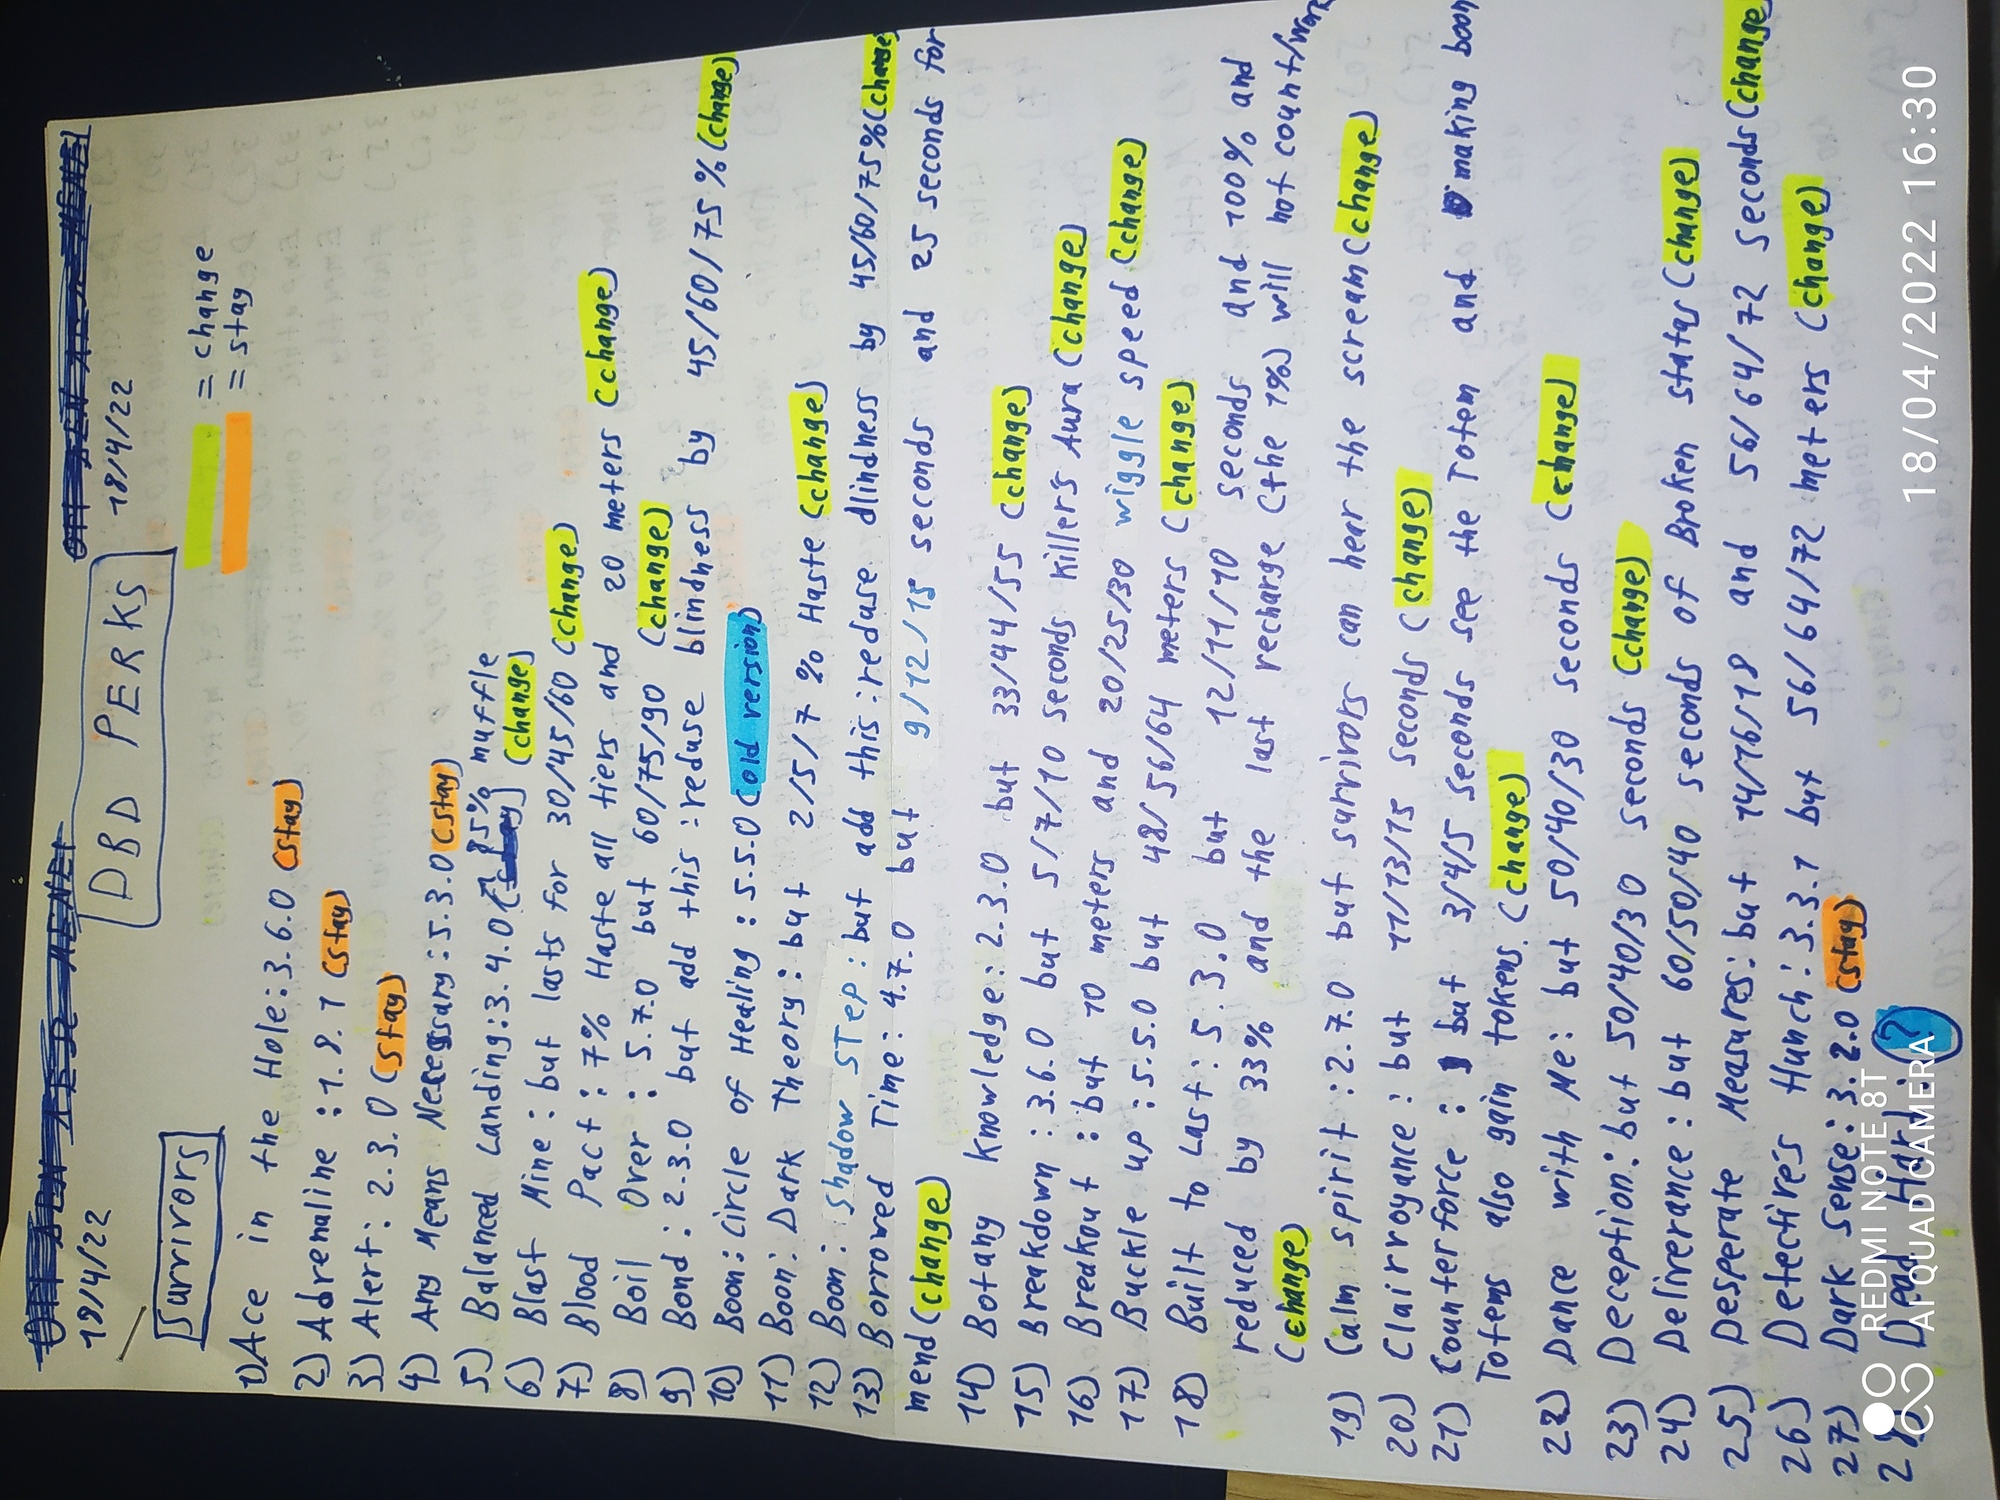 18/4/22
19/4/22
DBD PERKS
= change
= stay
Survivors
1) Ace in the Hole: 3.6.0 (stay)
2) Adrenaline : 1.9.1 (stay)
3) Alert: 2.3.0 (stay)
4) Any Means Necessary: 5.3.0 (stay)
5) Balanced Landing: 3.4.0 85% muffle (change)
6) Blast Mine : but lasts for 30/45/60 (change)
7) Blood Pact : 7% Haste all tiers and 20 meters (change)
8) Boil Over : 5.7.0 but 60/75/90 (change)
9) Bond : 2.3.0 but add this : reduse blindness by 45/60/75% (change)
10) Boon: Circle of Healing : 5.5.0 (old version)
11) Boon: Dark Theory : but 2/5/7 % Haste (change)
12) Boon: Shadow STeP : but add this : reduse dlindness by 45/60/75% (change
13) Borrowed Time : 4.7.0 but 9/12/15 seconds and 25 seconds for
mend (change)
14) Botany Knowledge : 2.3.0 but 33/44/55 (change)
15) Breakdown : 3.6.0 but 5/7/10 seconds killers Aura (change)
16) Breakout : but 10 meters and 20/25/30 wiggle speed (change)
17) Buckle up : 5.5.0 but 48/56/64 meters (change)
18) Built to Last : 5.3.0 but 12/11/10 seconds and 100% and
reduced by 33% and the last recharge (the 1%) will not count/work
(change)
19) Calm spirit : 2.7.0 but survivors can hear the scream (change)
20) Clairvoyance : but 11/13/15 seconds (change)
21) Counterforce : but 3/4/5 seconds see the Totem and making boon
Totems also gain tokens (change)
22) Dance with Me : but 50/40/30 seconds (change)
23) Deception: but 50/40/30 seconds (change)
24) Deliverance : but 60/50/40 seconds of Broken status (change)
25) Desperate Measures: but 14/16/18 and 56/64/72 seconds (change
26) Detective's Hunch : 3.3.1 but 56/64/72 meters (change)
27) Dark Sense: 3.2.0 (stay)
28) Dead Hard ?
REDMI NOTE 8T
AI QUAD CAMERA
18/04/2022 16:30